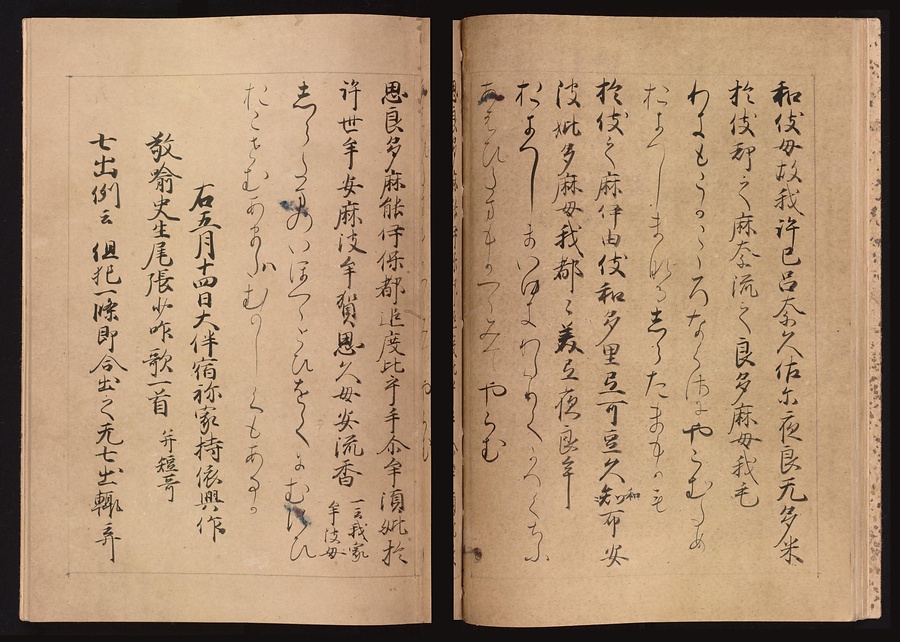 和伎母故我許己呂奈久佐尓夜良无多米
於伎都之麻奈流之良多麻母我毛
わきもこかこゝろなくさにやらむため
おきつしまなるしらたまもかも
於伎都之麻伊由伎和多里弖可豆久知布安
波妣多麻母我都々美弖夜良牟
おきつしまいゆきわたりてかつくちふ
あはひたまもかつゝみてやらむ
思良多麻能伊保都追度比乎手尓牟須妣於
許世牟安麻波牟賀思久母安流香 一云我家牟波母
しらたまのいほつゝとひをてにむすひ
おこせむあまはむかしくもあるか
右五月十四日大伴宿祢家持依興作
教喩史生尾張少咋歌一首 并短哥
七出例云 但犯一條即合出之无七出輙弃